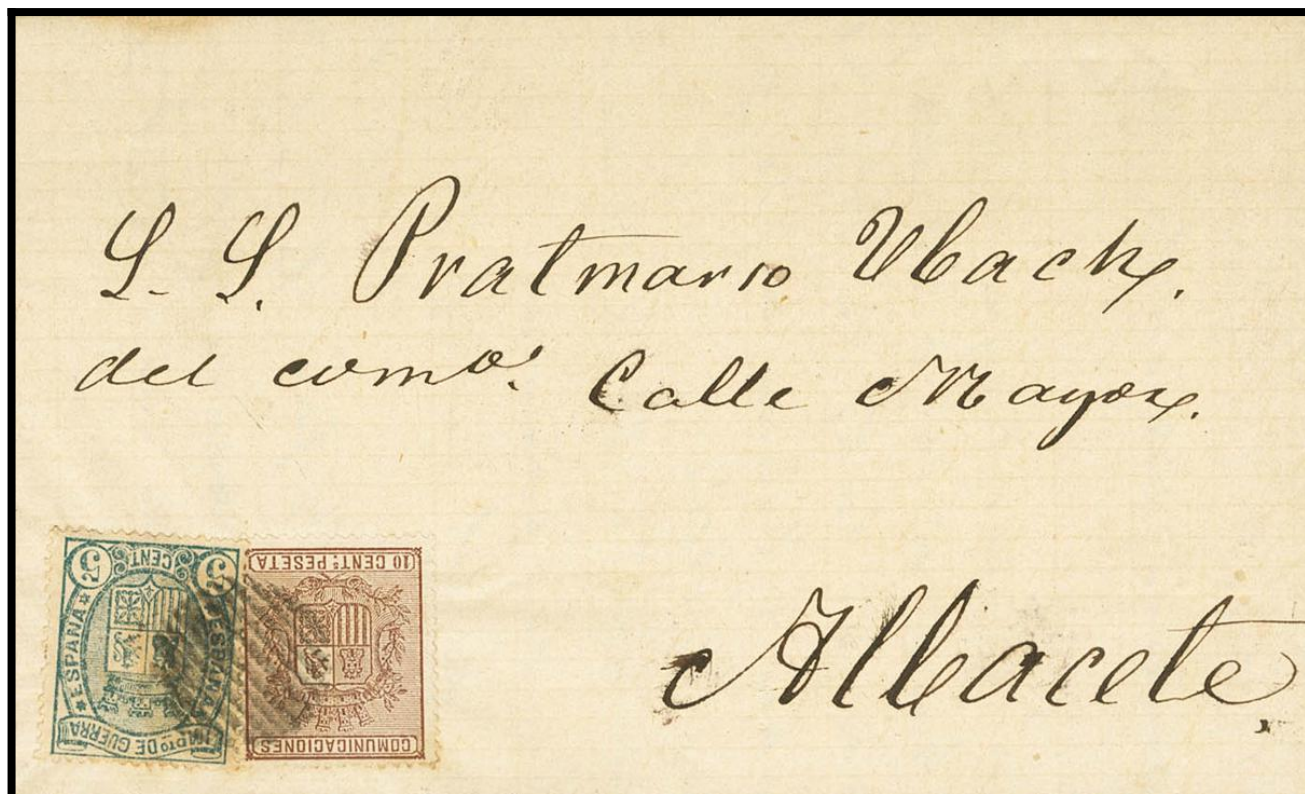 S. S. Pratmarso Ubach.
del como. Calle Mayor.
Albacete.
5 CENTS 5
*ESPAÑA* *ESPAÑA*
IMPTO DE GUERRA
10 CENTS PESETA
COMUNICACIONES